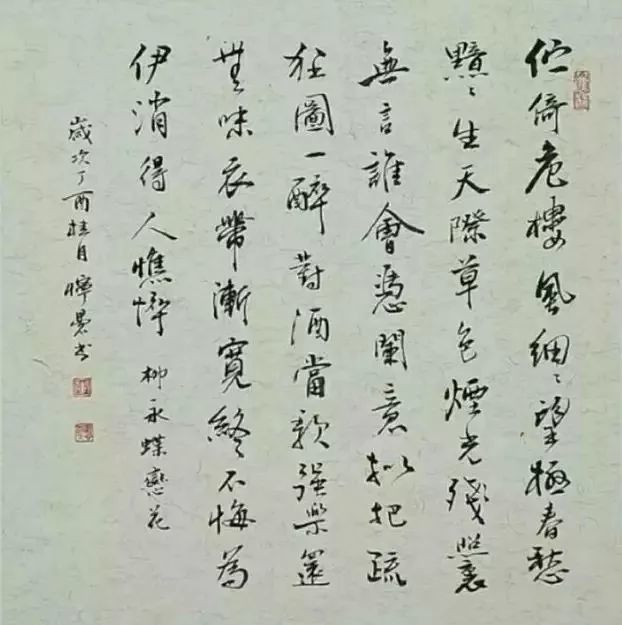 伫倚危樓風細〻望極春愁
黯〻生天際草色煙光殘照裏
無言誰會憑闌意拟把疏
狂圖一醉對酒當歌強樂還
無味衣帶漸寬終不悔為
伊消得人憔悴 柳永蝶戀花
歲次丁酉桂月 書